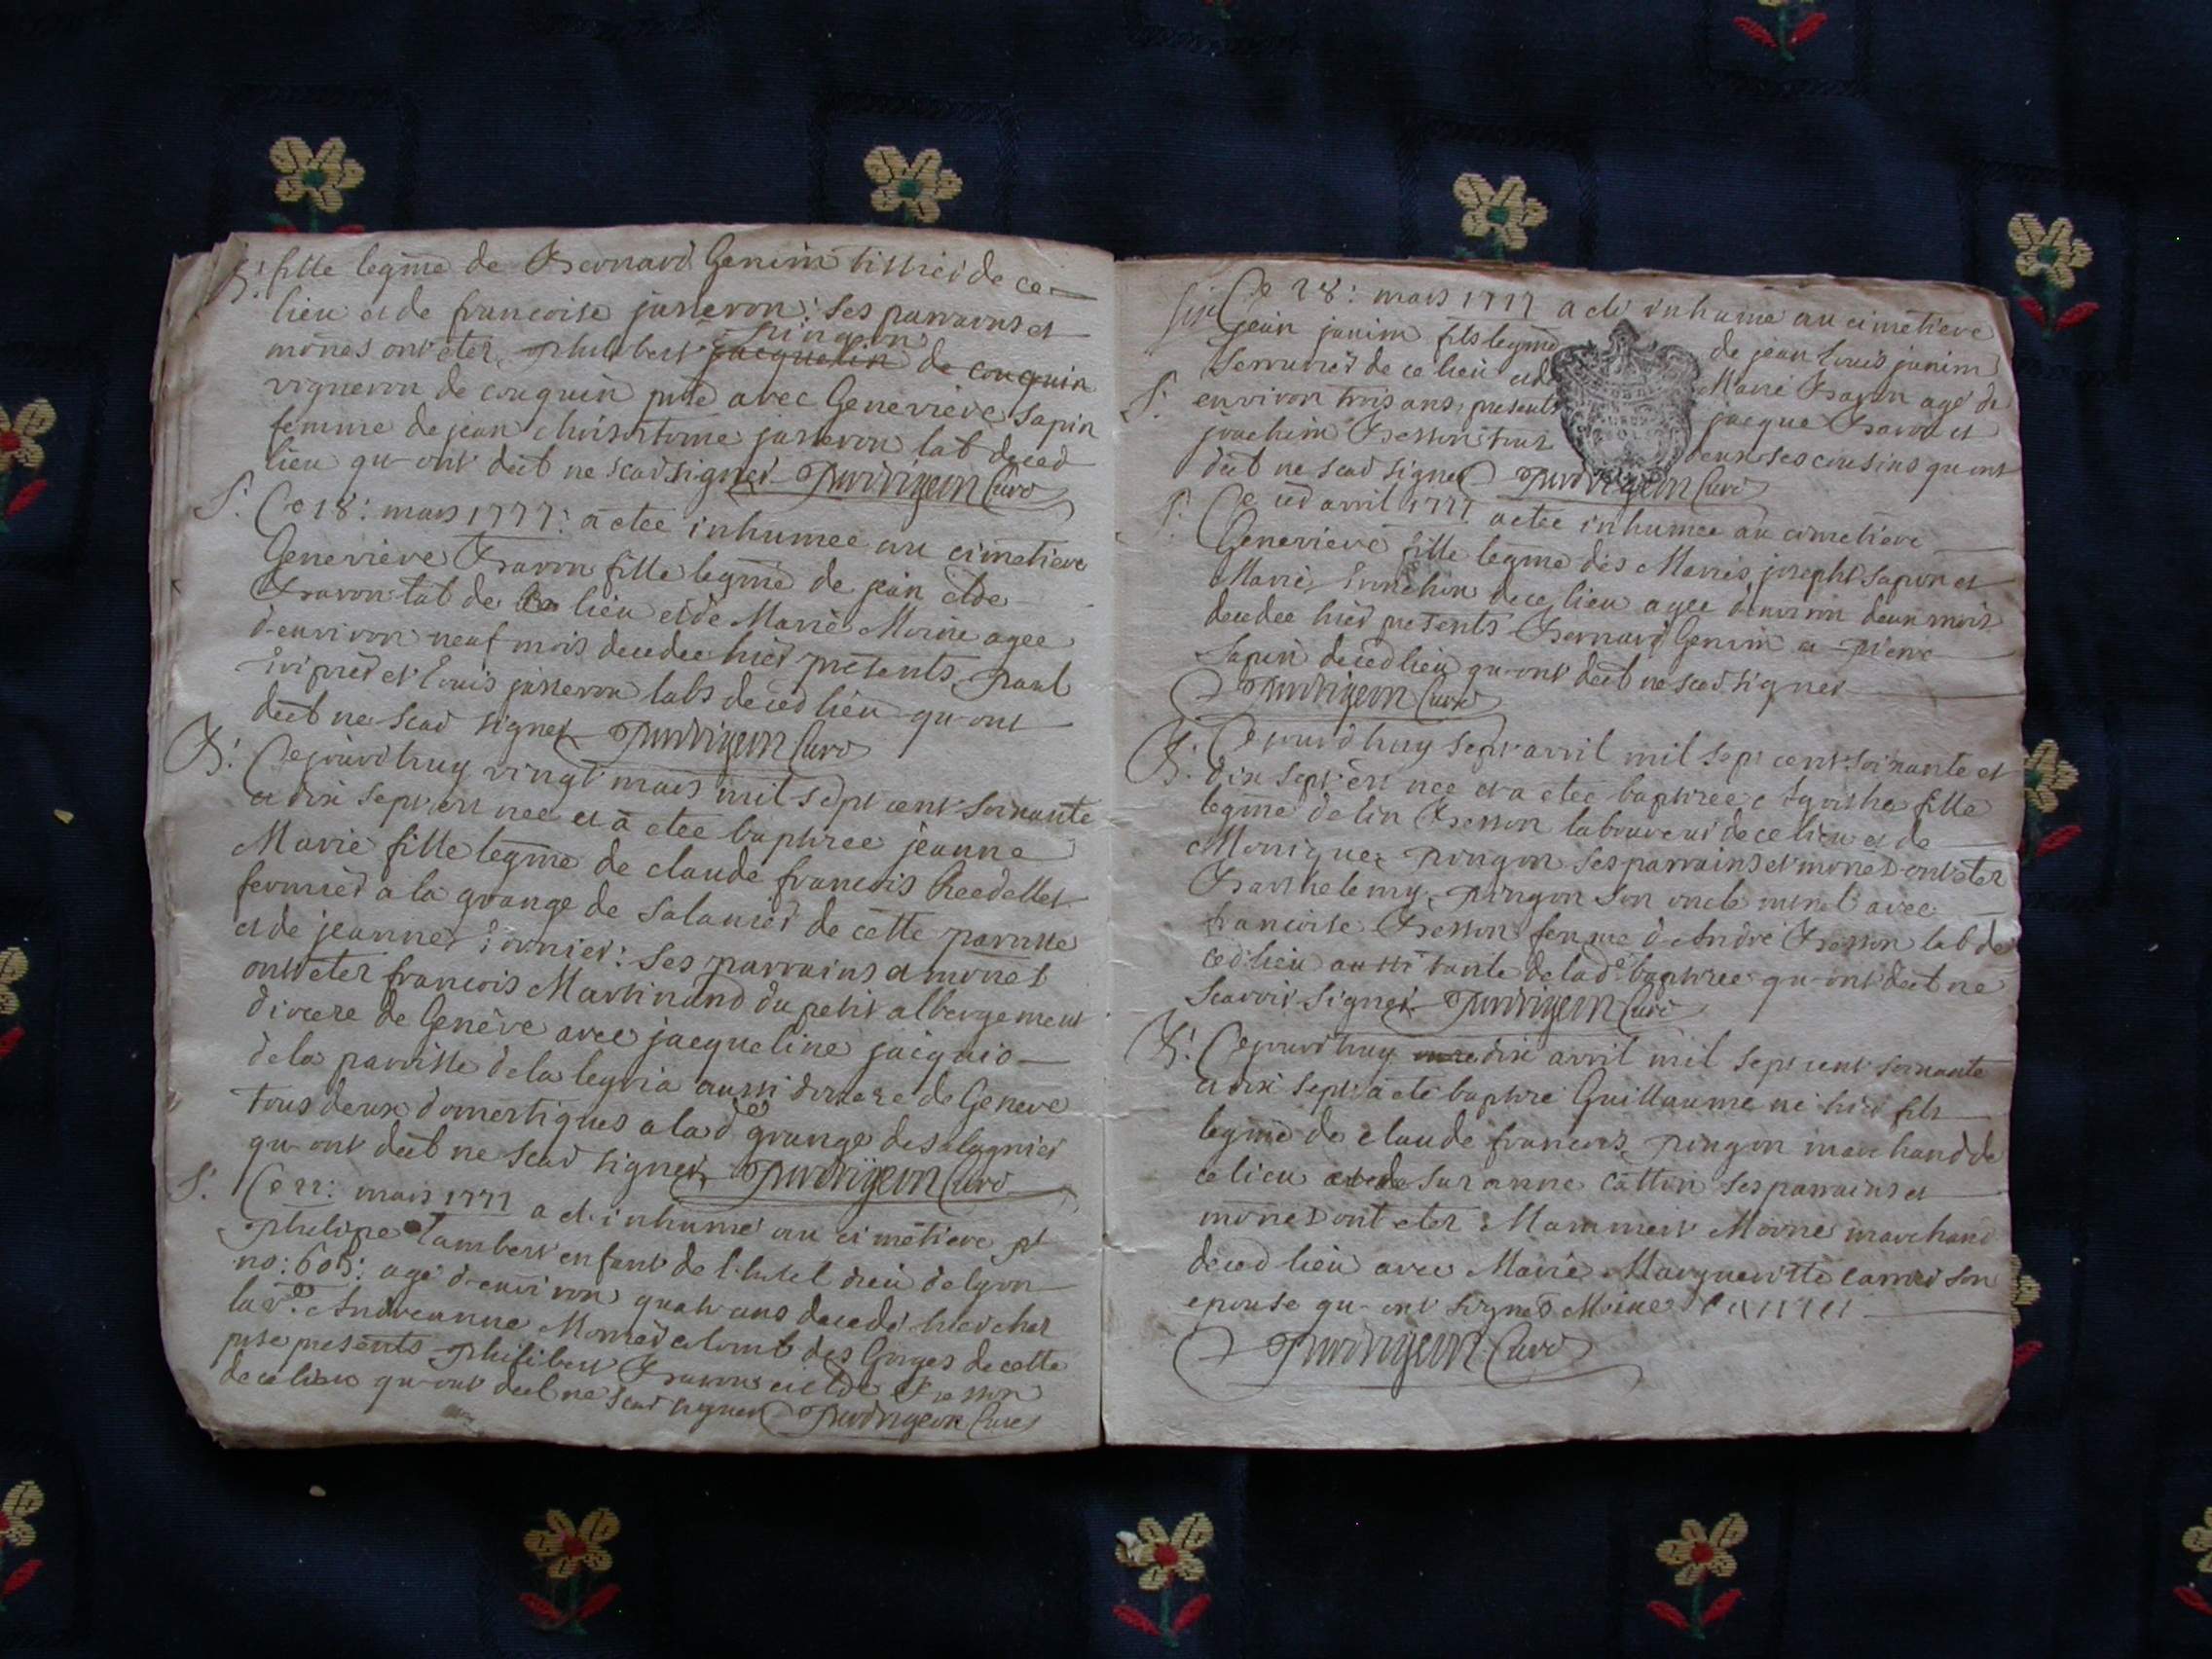 B: fille legme de Bernard Genim tissier de ce
lieu et de francoise jasseron: ses parrains et
pingon
mrnes ont eter philibert jacquelin de couquin
vigneron de couquin pnte avec Genevieve Sapin
femme de jean chrisostome jasseron lab decced
lieu qu-ont decl ne scav signer Curé
S: Ce 18: mars 1777: a etee inhumee au cimetiere
Genevieve Bavon fille legme de jean
Bavon lab de ce lieu et de Marie Moine agee
d'environ neuf mois decedee hier presents paul
et louis jasseron labs decced lieu qu-ont
decl ne scav signer Curé
B: Cejourdhuy vingt mars mil sept cent soixante
et dix sept est nee et a etee baptisee jeanne
Marie fille legme de claude francois Reedellet
fermier a la grange de Salanier de cette paroisse
et de jeanne fournier: ses parrains et mrnet
ont eter francois Martinand du petit albergement
diocese de Genève avec jacqueline jacquio
de la paroisse de la leyria aussi diocese de Geneve
tous deux domestiques a la de grange de salagnier
qu-ont decl ne scav signer Curé
S. Ce 22: mars 1777 a eté inhumé au cimetiere
philipe lambert enfant de l'hotel dieu de lyon
no: 605: agé d'environ quatre ans decedé hier chez
la ve Andreanne Monier colomb des Gorges de cette
pse presents philibert Bavon Besson
de ce lieu qu-ont decl ne scav signer Curé
six Ce 28: mars 1777 a eté inhume au cimetiere
jean janim fils legme de jean louis janim
S: serrurier de ce lieu et de Marie Bavon agé de
environ trois ans, presents jacque Bavon et
joachim Besson tous deux ses cousins qu-ont
decl ne scav signer Curé
S: Ce avril 1777 a etee inhumee au cimetiere
Genevieve fille legme des Maries joseph Sapin et
Marie de ce lieu agee d'environ deux mois
decedee hier presents Bernard Genim et pierre
Sapin decedlieu qu-ont decl ne scav signer
Curé
B: Cejourdhuy sept avril mil sept cent soixante et
dix sept est nee et a etee baptisee Agathe fille
legme de lin Besson laboureur de ce lieu et de
Monique pingon ses parrains et mrnes ont eter
Barthelemy pingon son oncle avec
francoise Besson femme d'André Besson lab de
cedlieu aussi tante de lad. baptisee qu-ont decl ne
scavoir signer Curé
B: Cejourdhuy dix avril mil sept cent soixante
et dix sept a eté baptisé Guillaume né hier fils
legme de claude francois pingon marchand de
ce lieu et de Suzanne Cattin ses parrains et
mrnes ont eter Mammert Moine marchand
decced lieu avec Marie Margueritte son
epouse qu-ont signés Moine
Curé